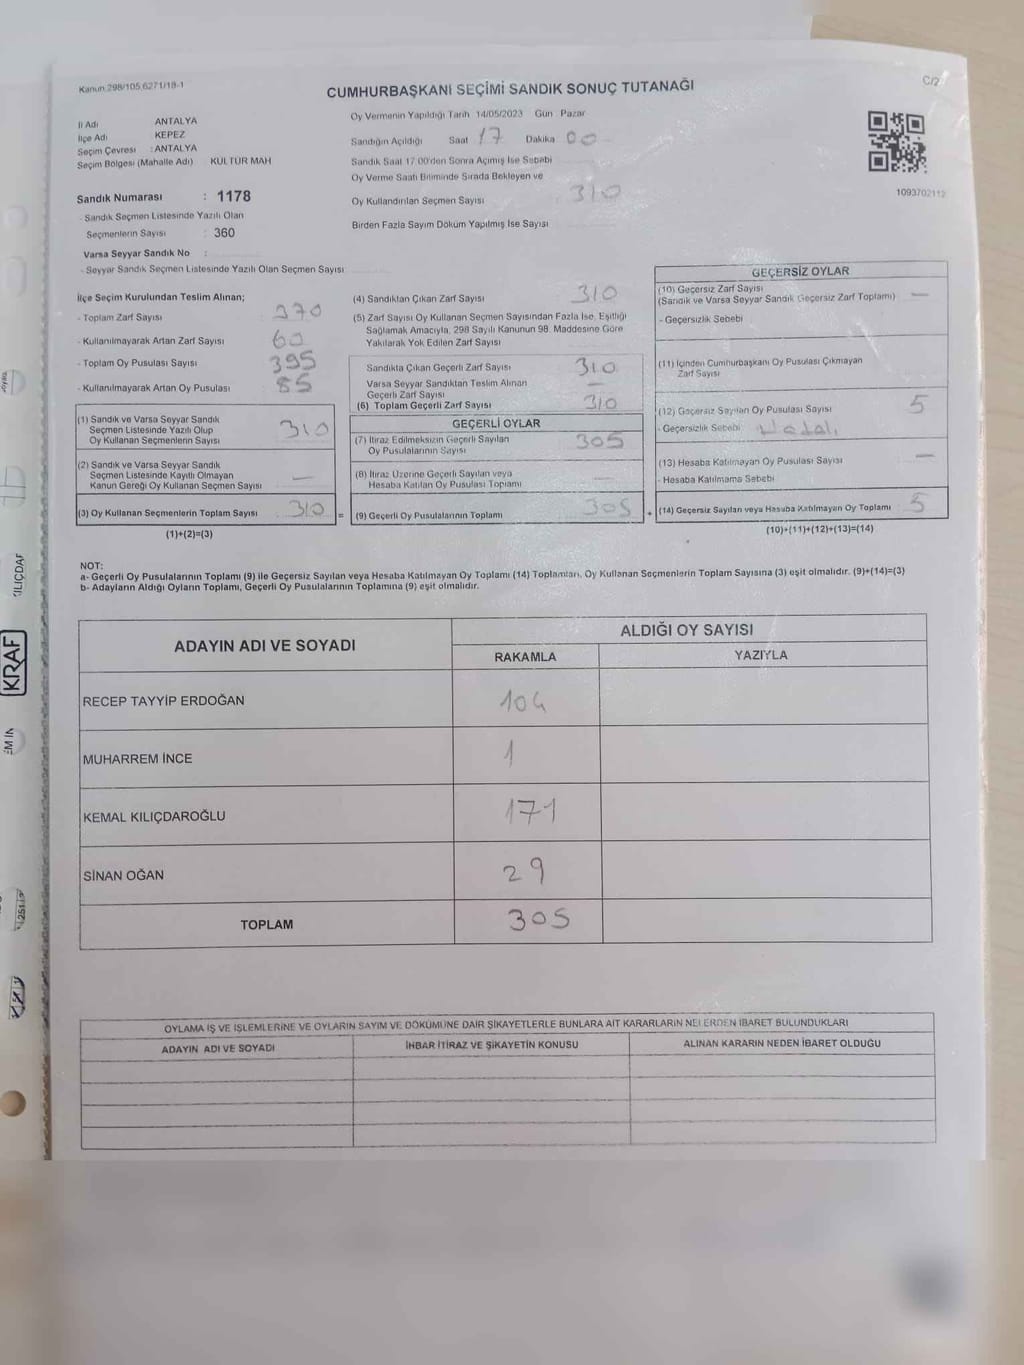 Kanun 298/105,6271/18-1
C/2
CUMHURBAŞKANI SEÇİMİ SANDIK SONUÇ TUTANAĞI
İl Adı ANTALYA
İlçe Adı KEPEZ
Seçim Çevresi : ANTALYA
Seçim Bölgesi (Mahalle Adı) : KÜLTÜR MAH
Sandık Numarası : 1178
- Sandık Seçmen Listesinde Yazılı Olan
Seçmenlerin Sayısı : 360
Varsa Seyyar Sandık No :
- Seyyar Sandık Seçmen Listesinde Yazılı Olan Seçmen Sayısı
Oy Vermenin Yapıldığı Tarih 14/05/2023 Gün : Pazar
Sandığın Açıldığı Saat 17 Dakika 00
Sandık Saat 17.00'den Sonra Açılmış İse Sebebi
Oy Verme Saati Bitiminde Sırada Bekleyen ve
Oy Kullandırılan Seçmen Sayısı : 310
Birden Fazla Sayım Döküm Yapılmış İse Sayısı
1093702112
İlçe Seçim Kurulundan Teslim Alınan;
- Toplam Zarf Sayısı : 370
- Kullanılmayarak Artan Zarf Sayısı : 60
- Toplam Oy Pusulası Sayısı : 395
- Kullanılmayarak Artan Oy Pusulası : 85
(1) Sandık ve Varsa Seyyar Sandık
Seçmen Listesinde Yazılı Olup
Oy Kullanan Seçmenlerin Sayısı : 310
(2) Sandık ve Varsa Seyyar Sandık
Seçmen Listesinde Kayıtlı Olmayan
Kanun Gereği Oy Kullanan Seçmen Sayısı : —
(3) Oy Kullanan Seçmenlerin Toplam Sayısı : 310 =
(1)+(2)=(3)
(4) Sandıktan Çıkan Zarf Sayısı : 310
(5) Zarf Sayısı Oy Kullanan Seçmen Sayısından Fazla İse, Eşitliği
Sağlamak Amacıyla, 298 Sayılı Kanunun 98. Maddesine Göre
Yakılarak Yok Edilen Zarf Sayısı
Sandıkta Çıkan Geçerli Zarf Sayısı : 310
Varsa Seyyar Sandıktan Teslim Alınan
Geçerli Zarf Sayısı —
(6) Toplam Geçerli Zarf Sayısı : 310
GEÇERLİ OYLAR
(7) İtiraz Edilmeksizin Geçerli Sayılan
Oy Pusulalarının Sayısı : 305
(8) İtiraz Üzerine Geçerli Sayılan veya
Hesaba Katılan Oy Pusulası Toplamı : —
(9) Geçerli Oy Pusulalarının Toplamı : 305 +
GEÇERSİZ OYLAR
(10) Geçersiz Zarf Sayısı
(Sandık ve Varsa Seyyar Sandık Geçersiz Zarf Toplamı) —
- Geçersizlik Sebebi
(11) İçinden Cumhurbaşkanı Oy Pusulası Çıkmayan
Zarf Sayısı
(12) Geçersiz Sayılan Oy Pusulası Sayısı : 5
- Geçersizlik Sebebi
(13) Hesaba Katılmayan Oy Pusulası Sayısı : —
- Hesaba Katılmama Sebebi
(14) Geçersiz Sayılan veya Hesaba Katılmayan Oy Toplamı : 5
(10)+(11)+(12)+(13)=(14)
NOT:
a- Geçerli Oy Pusulalarının Toplamı (9) ile Geçersiz Sayılan veya Hesaba Katılmayan Oy Toplamı (14) Toplamları, Oy Kullanan Seçmenlerin Toplam Sayısına (3) eşit olmalıdır. (9)+(14)=(3)
b- Adayların Aldığı Oyların Toplamı, Geçerli Oy Pusulalarının Toplamına (9) eşit olmalıdır.
ADAYIN ADI VE SOYADI
ALDIĞI OY SAYISI
RAKAMLA YAZIYLA
RECEP TAYYİP ERDOĞAN 104
MUHARREM İNCE 1
KEMAL KILIÇDAROĞLU 171
SİNAN OĞAN 29
TOPLAM 305
OYLAMA İŞ VE İŞLEMLERİNE VE OYLARIN SAYIM VE DÖKÜMÜNE DAİR ŞİKAYETLERLE BUNLARA AİT KARARLARIN NELERDEN İBARET BULUNDUKLARI
ADAYIN ADI VE SOYADI İHBAR İTİRAZ VE ŞİKAYETİN KONUSU ALINAN KARARIN NEDEN İBARET OLDUĞU
KRAF